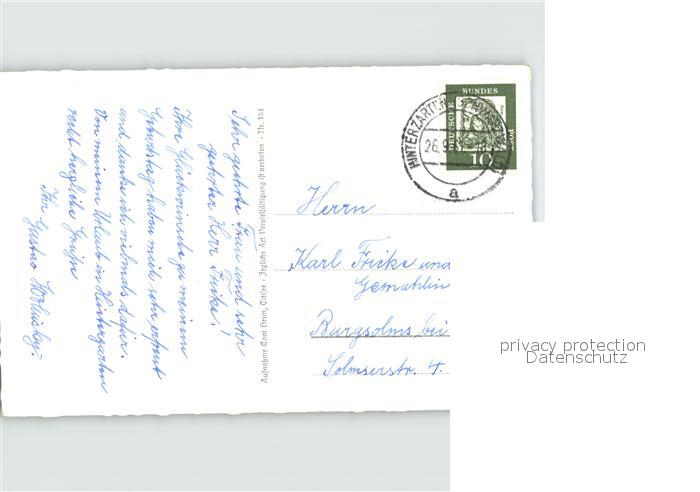 Sehr geehrte Frau und sehr
geehrter Herr Fricke!
Ihre Glückwünsche zu meinem
Geburtstag haben mich sehr erfreut
und danke ich vielmals dafür.
Von meinem Urlaub in Hinterzarten
recht herzliche Grüße
Ihr Gustav
Aufnahme Toni Heim, Titisee - Jegliche Art Vervielfältigung ist verboten - Nr. 151
DEUTSCHE BUNDES POST
10
HINTERZARTEN
26.9.
a
Herrn
Karl Fricke und
Gemahlin
Burgsolms bei
Solmserstr. 4.
privacy protection
Datenschutz